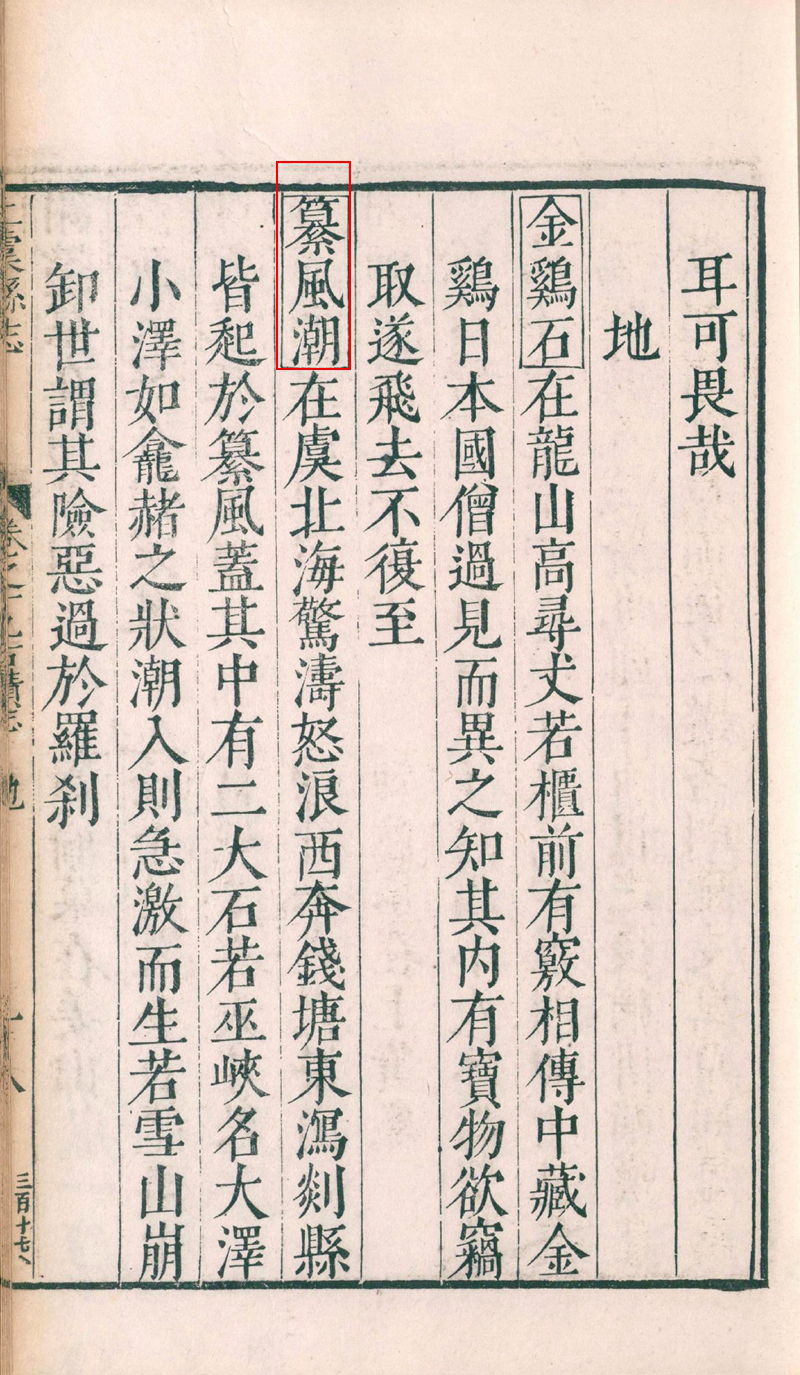 耳可畏哉
地
金鷄石在龍山高尋丈若櫃前有竅相傳中藏金
鷄日本國僧過見而異之知其内有寶物欲竊
取遂飛去不復至
纂風潮在虞北海驚濤怒浪西奔錢塘東瀉剡縣
皆起於纂風蓋其中有二大石若巫峽名大澤
小澤如龕赭之狀潮入則急激而生若雪山崩
卸世謂其險惡過於羅刹
上虞縣志
卷之十九古蹟志
地
十八
三百十七